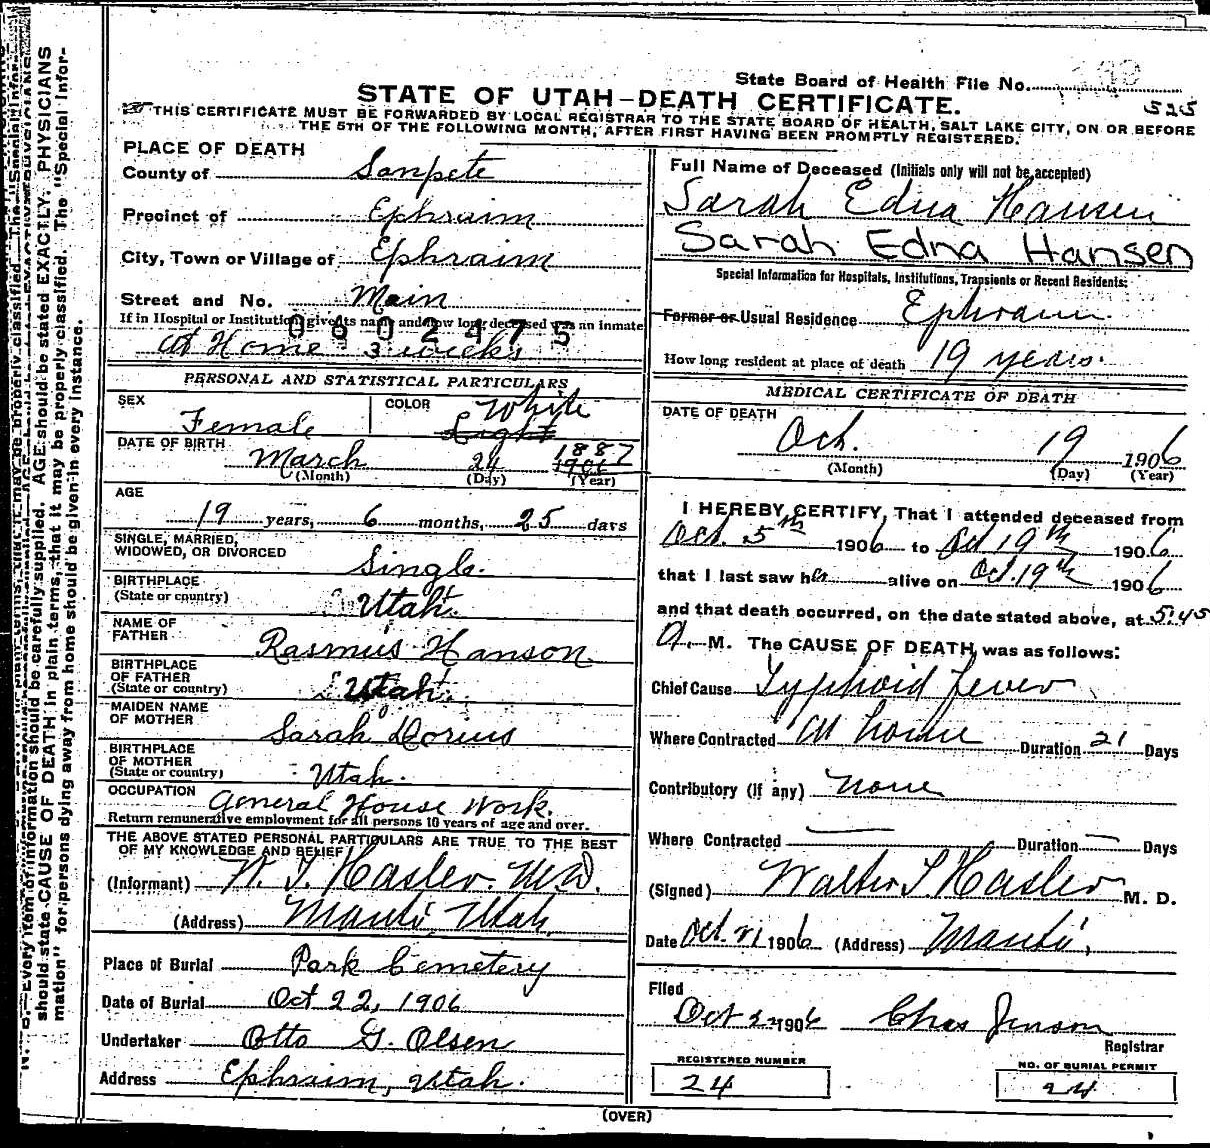 State Board of Health File No.
525
STATE OF UTAH—DEATH CERTIFICATE.
THIS CERTIFICATE MUST BE FORWARDED BY LOCAL REGISTRAR TO THE STATE BOARD OF HEALTH, SALT LAKE CITY, ON OR BEFORE
THE 5TH OF THE FOLLOWING MONTH, AFTER FIRST HAVING BEEN PROMPTLY REGISTERED.
PLACE OF DEATH
County of Sanpete
Precinct of Ephraim
City, Town or Village of Ephraim
Street and No. Main
If in Hospital or Institution give its name and how long deceased was an inmate
0602475
At Home 3 weeks
PERSONAL AND STATISTICAL PARTICULARS
SEX Female COLOR White Light
DATE OF BIRTH March 24 1887 1906
(Month) (Day) (Year)
AGE
19 years, 6 months, 25 days
SINGLE, MARRIED,
WIDOWED, OR DIVORCED Single.
BIRTHPLACE
(State or country) Utah.
NAME OF
FATHER Rasmus Hanson
BIRTHPLACE
OF FATHER
(State or country) Utah.
MAIDEN NAME
OF MOTHER Sarah Dorius
BIRTHPLACE
OF MOTHER
(State or country) Utah.
OCCUPATION General House Work.
Return remunerative employment for all persons 10 years of age and over.
THE ABOVE STATED PERSONAL PARTICULARS ARE TRUE TO THE BEST
OF MY KNOWLEDGE AND BELIEF
(Informant) W. T. Hasler. M.D.
(Address) Manti, Utah.
Place of Burial Park Cemetery
Date of Burial Oct 22, 1906
Undertaker Otto G. Olsen
Address Ephraim, Utah.
Full Name of Deceased (Initials only will not be accepted)
Sarah Edna Hansen
Sarah Edna Hansen
Special Information for Hospitals, Institutions, Transients or Recent Residents:
Former or Usual Residence Ephraim.
How long resident at place of death 19 years.
MEDICAL CERTIFICATE OF DEATH
DATE OF DEATH
Oct. 19 1906
(Month) (Day) (Year)
I HEREBY CERTIFY, That I attended deceased from
Oct. 5th 1906 to Oct 19th 1906
that I last saw her alive on Oct. 19th 1906
and that death occurred, on the date stated above, at 5:45
A. M. The CAUSE OF DEATH was as follows:
Chief Cause Typhoid Fever
Where Contracted At home Duration 21 Days
Contributory (if any) None
Where Contracted — Duration — Days
(Signed) Walter T Hasler M. D.
Date Oct. 21 1906 (Address) Manti,
Filed
Oct 22 1906 Chas Jenson
Registrar
REGISTERED NUMBER
24
NO. OF BURIAL PERMIT
24
(OVER)
N. B.—Every item of information should be carefully supplied. AGE should be stated EXACTLY. PHYSICIANS
should state CAUSE OF DEATH in plain terms, that it may be properly classified. The "Special Infor-
mation" for persons dying away from home should be given in every instance.